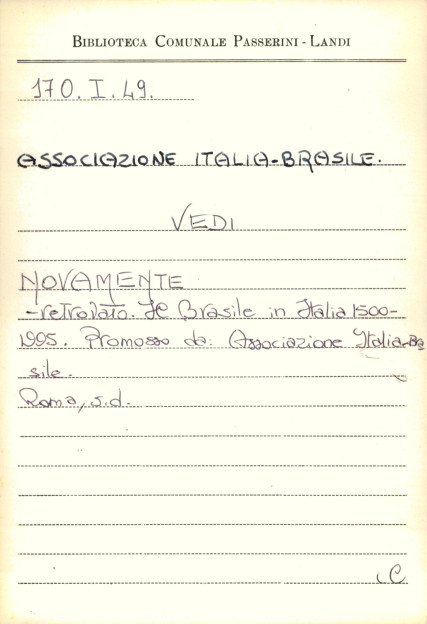 BIBLIOTECA COMUNALE PASSERINI - LANDI
170. I. 49.
ASSOCIAZIONE ITALIA-BRASILE.
VEDI
NOVAMENTE
-retrovato. Il Brasile in Italia 1500-
1995. Promosso da: Associazione Italia-Bra
sile.
Roma, s.d.
C